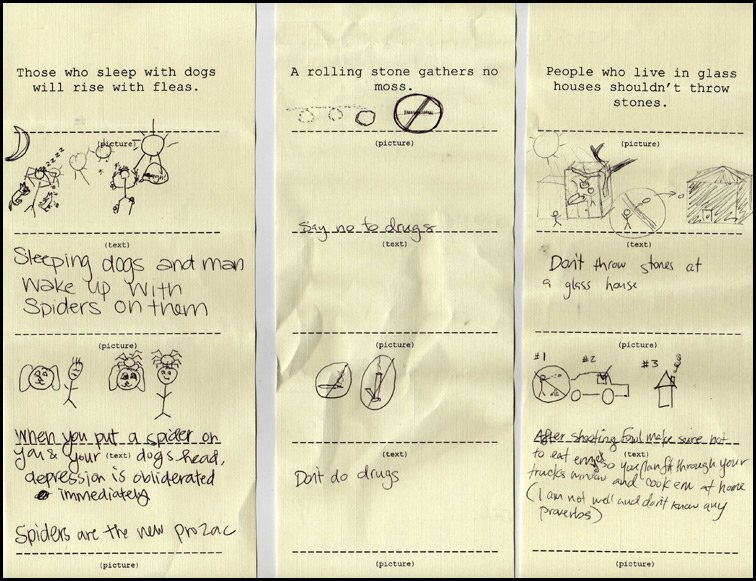 Those who sleep with dogs
will rise with fleas.
(picture)
zzzzz
(text)
Sleeping dogs and man
wake up with
spiders on them
(picture)
When you put a spider on
you & your (text) dogs head,
depression is obliderated
immediately
Spiders are the new prozac
(picture)
A rolling stone gathers no
moss.
(picture)
Say no to drugs
(text)
(picture)
(text)
Dont do drugs
(picture)
People who live in glass
houses shouldn't throw
stones.
(picture)
(text)
Don't throw stones at
a glass house
(picture)
#1 #2 #3
After shooting foul make sure not
(text)
to eat so you can fit through your
trucks window and cook em at home
(I am not well and don't know any
proverbs)
(picture)